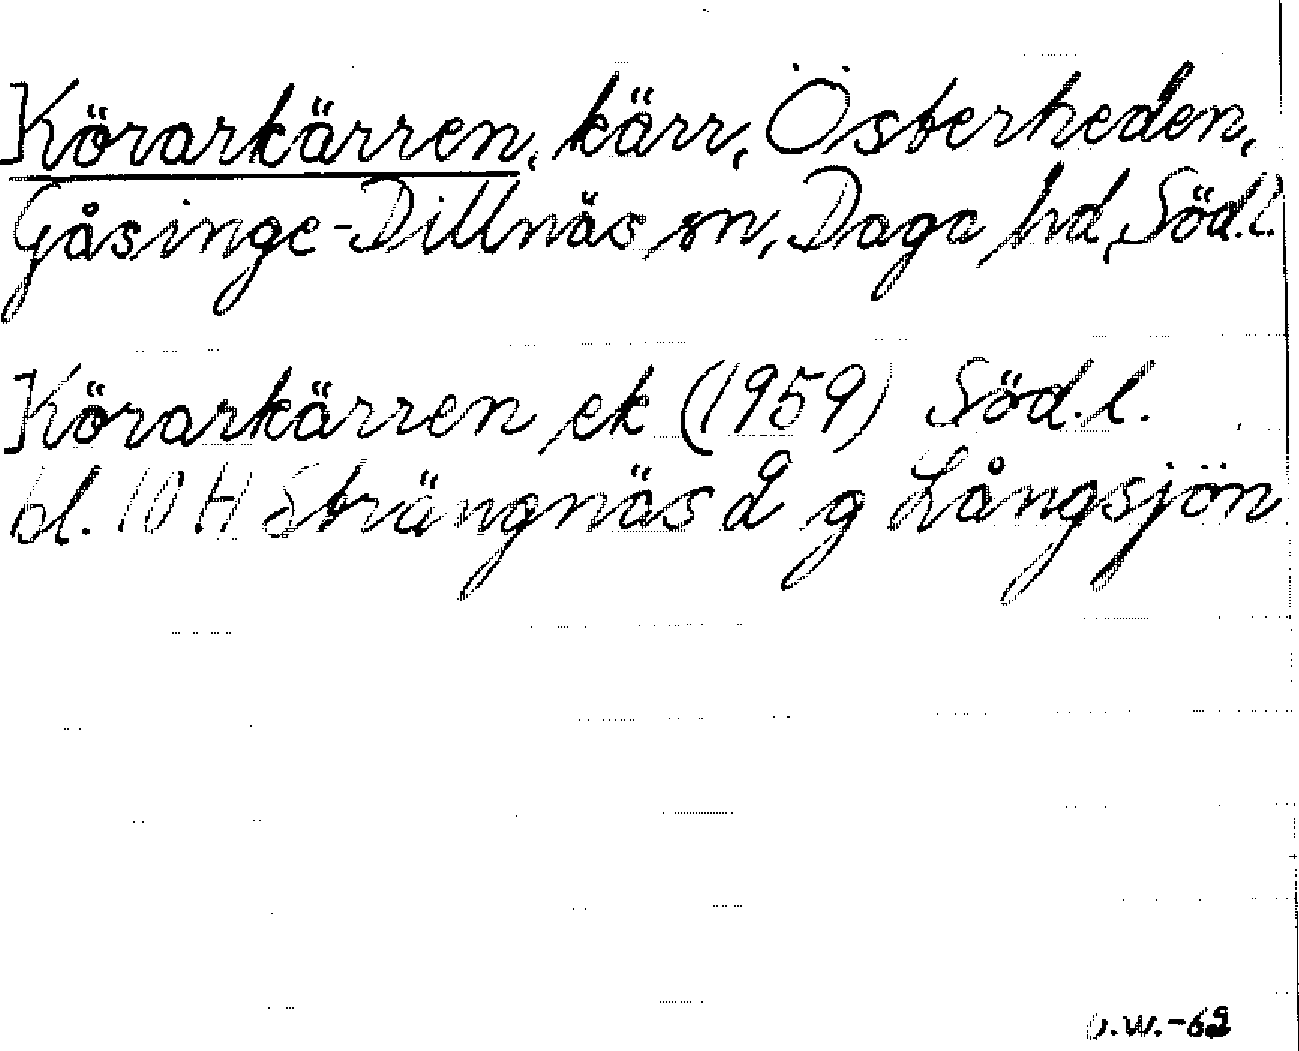 Körarkärren, kärr, Österheden,
Gåsinge-Dillnäs sn, Daga hd, Söd.l.
Körarkärren ek (1959) Söd.l.
bl. 10 H Strängnäs 2 g Långsjön
.W.-62